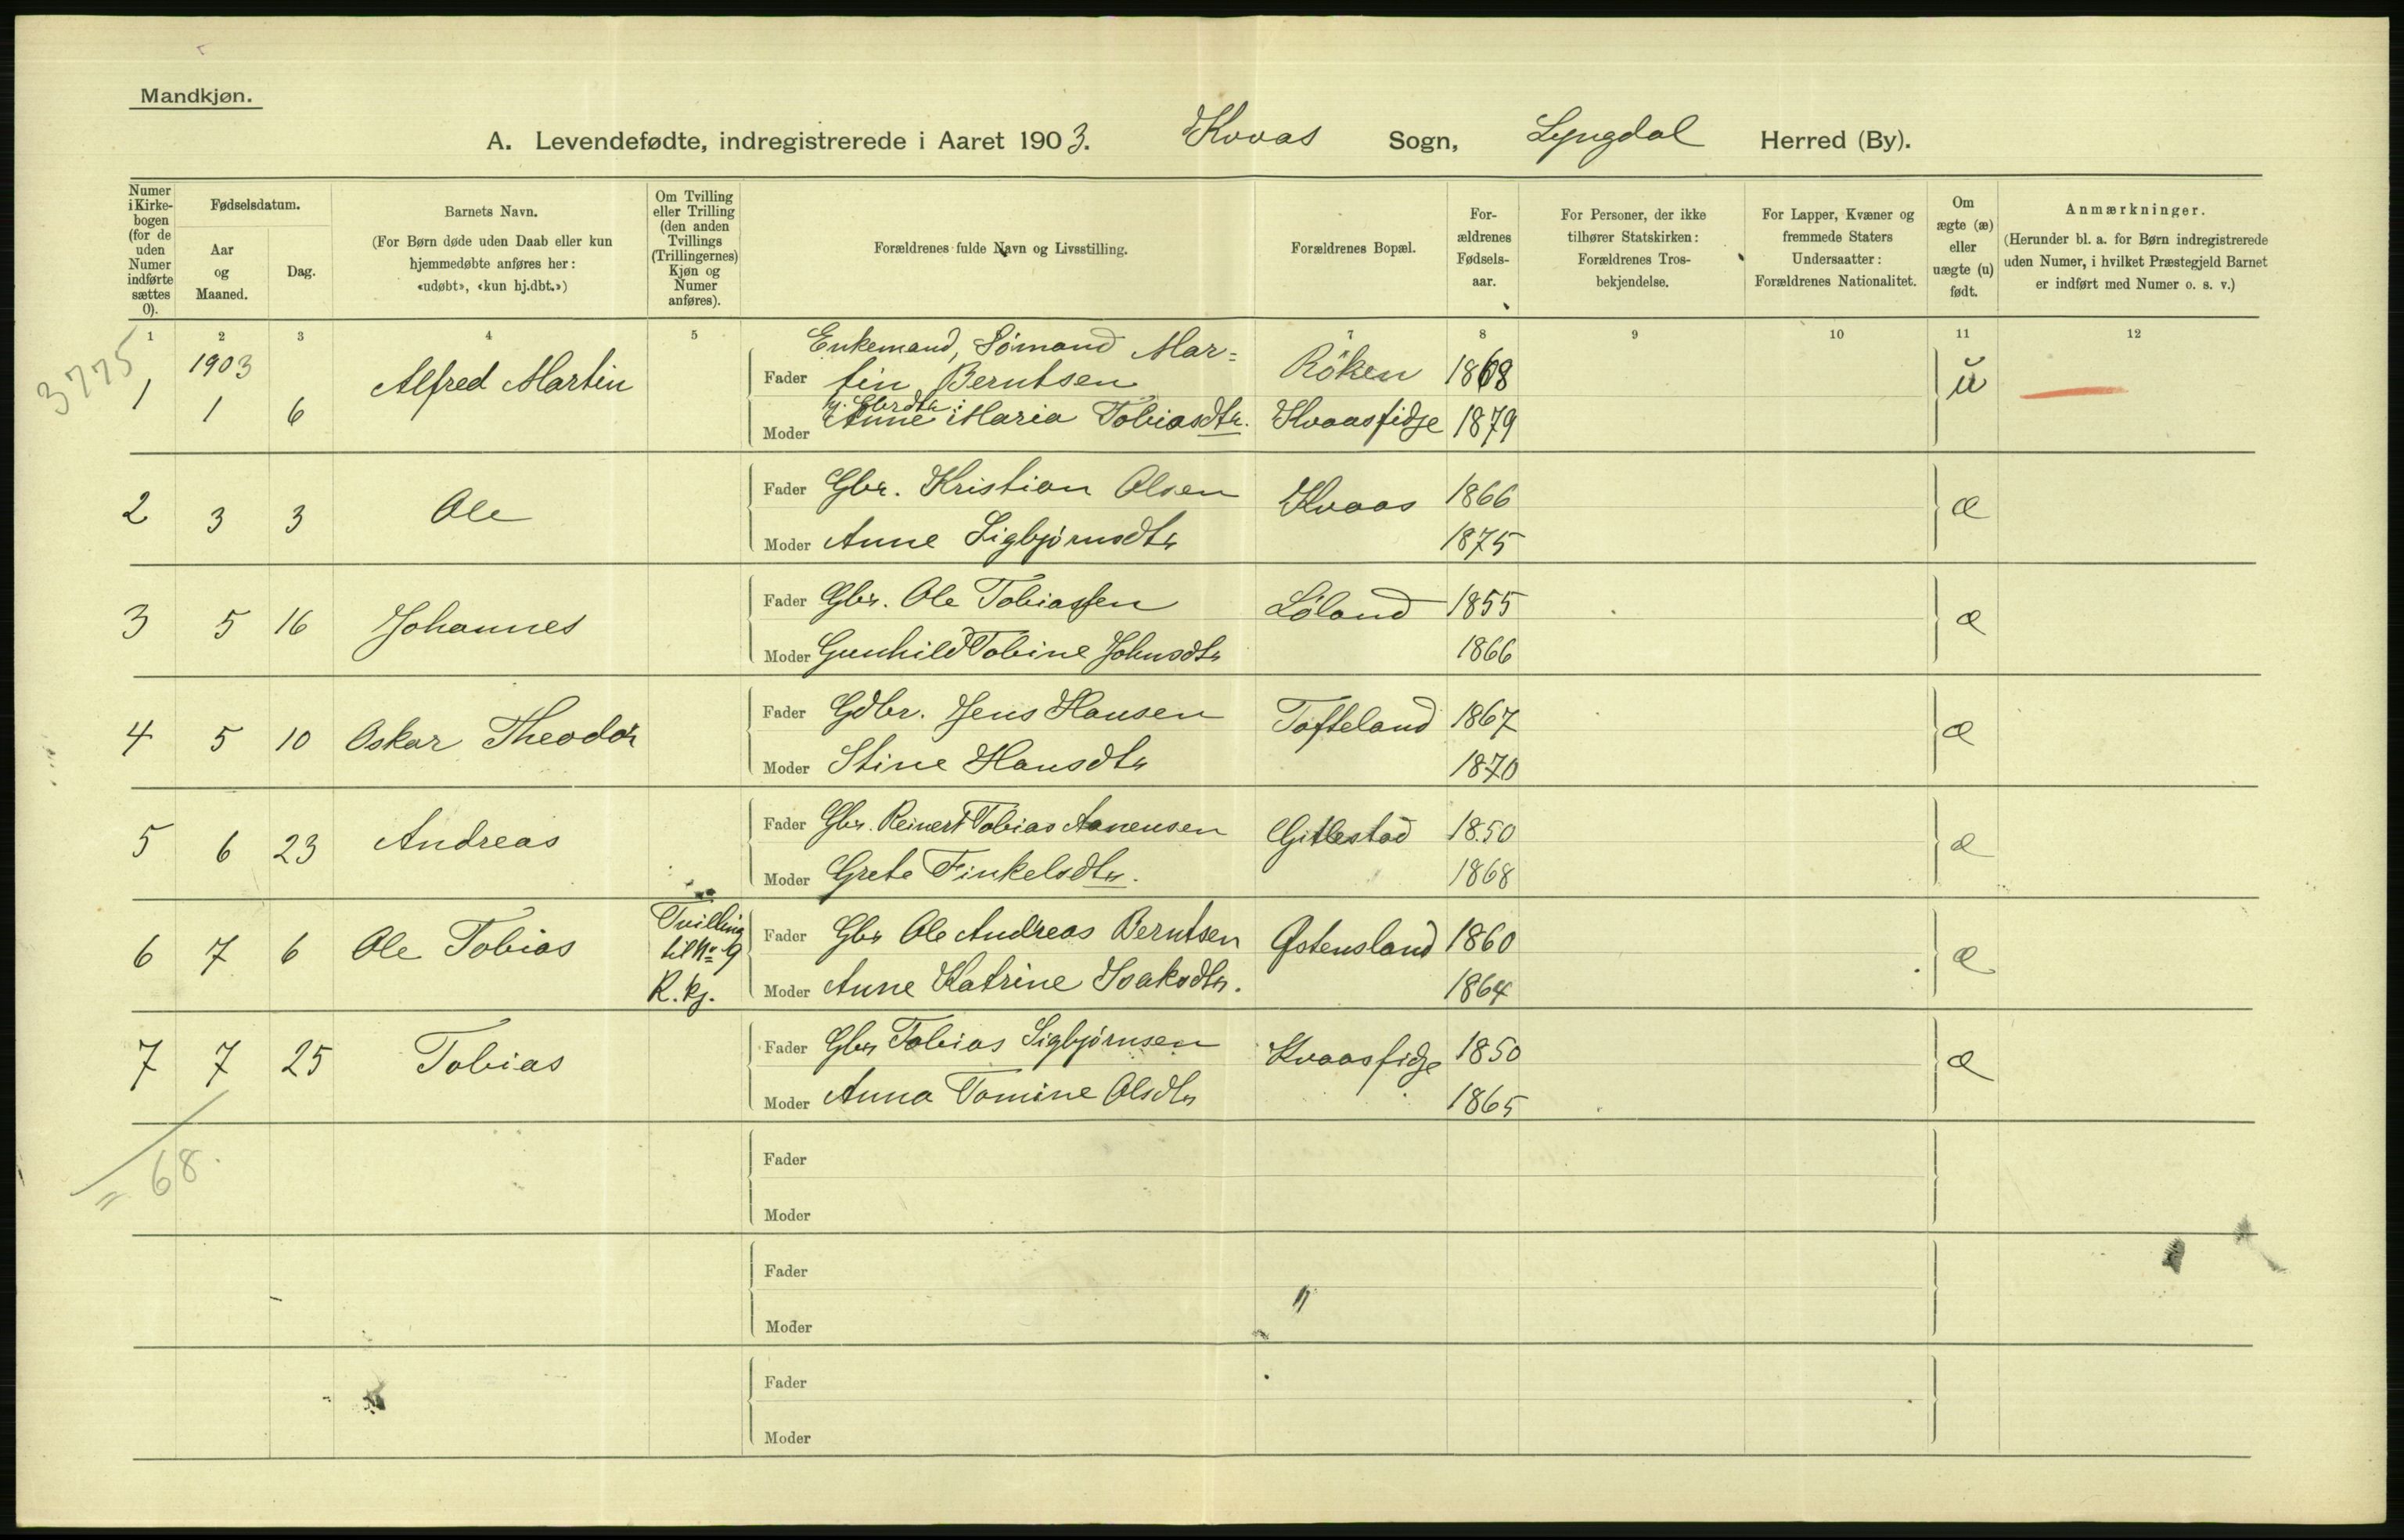 Mandkjøn.
A. Levendefødte, indregistrerede i Aaret 1903. Kvaas Sogn, Lyngdal Herred (By).
Numer i Kirke-bogen (for de uden Numer indførte sættes 0).
Fødselsdatum.
Aar og Maaned.
Dag.
Barnets Navn.
(For Børn døde uden Daab eller kun
hjemmedøbte anføres her:
«udøbt», «kun hj.dbt.»)
Om Tvilling
eller Trilling
(den anden
Tvillings
(Trillingernes)
Kjøn og
Numer
anføres).
Forældrenes fulde Navn og Livsstilling.
Forældrenes Bopæl.
For-
ældrenes
Fødsels-
aar.
For Personer, der ikke
tilhører Statskirken:
Forældrenes Tros-
bekjendelse.
For Lapper, Kvæner og
fremmede Staters
Undersaatter:
Forældrenes Nationalitet.
Om
ægte (æ)
eller
uægte (u)
født.
Anmærkninger.
(Herunder bl. a. for Børn indregistrerede
uden Numer, i hvilket Præstegjeld Barnet
er indført med Numer o. s. v.)
1 2 3 4 5 7 8 9 10 11 12
3775
1903
Enkemand, Sømand Mar=
1 1 6 Alfred Martin Fader tin Berntsen Røken 1868 u
Moder Anne Maria Tobiasdtr. Kvaasfidje 1879
2 3 3 Ole Fader Gbr. Kristian Olsen Kvaas 1866 æ
Moder Anne Sigbjørnsdtr 1875
3 5 16 Johannes Fader Gbr. Ole Tobiassen Løland 1855 æ
Moder Gunhild Tobine Johnsdtr 1866
4 5 10 Oskar Theodor Fader Gdbr. Jens Hansen Tofteland 1867 æ
Moder Stine Hansdtr 1870
5 6 23 Andreas Fader Gbr. Reinert Tobias Aanensen Gitlestad 1850 æ
Moder Grete Finkelsdtr. 1868
6 7 6 Ole Tobias Tvilling til No 9 K. kj. Fader Gbr Ole Andreas Berntsen Østensland 1860 æ
Moder Anne Katrine Isaksdtr. 1864
7 7 25 Tobias Fader Gbr Tobias Sigbjørnsen Kvaasfidje 1850 æ
Moder Anna Tomine Olsdtr 1865
68.
Fader
Moder
Fader
Moder
Fader
Moder